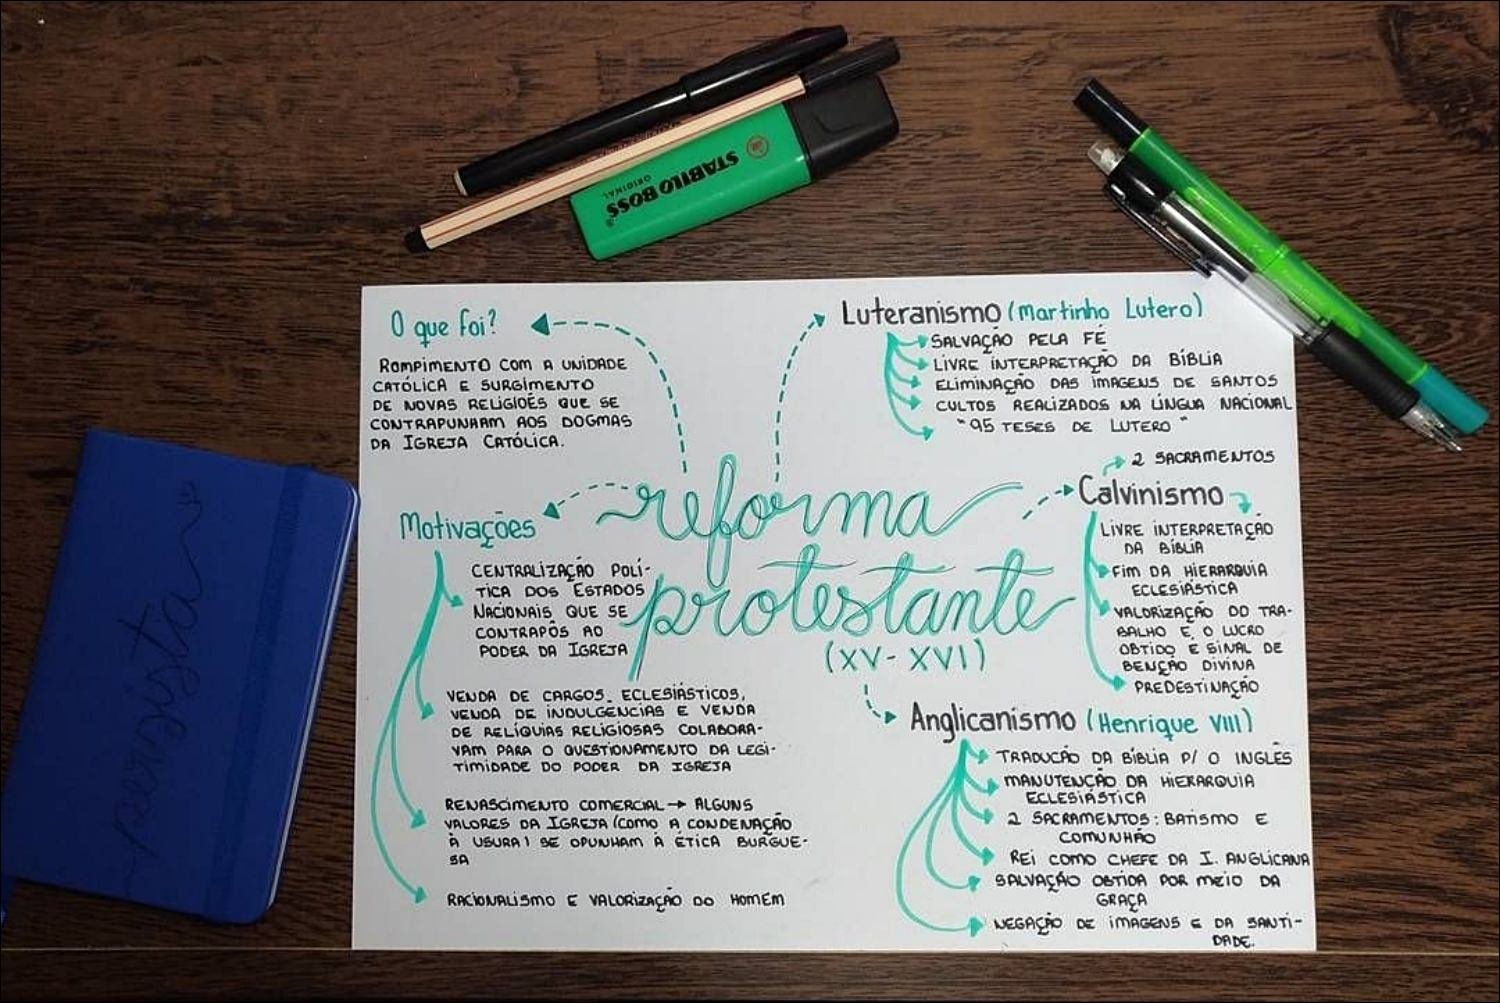 STABILO BOSS
ORIGINAL
persista
O que foi?
ROMPIMENTO COM A UNIDADE
CATÓLICA E SURGIMENTO
DE NOVAS RELIGIÕES QUE SE
CONTRAPUNHAM AOS DOGMAS
DA IGREJA CATÓLICA.
Luteranismo (Martinho Lutero)
SALVAÇÃO PELA FÉ
LIVRE INTERPRETAÇÃO DA BÍBLIA
ELIMINAÇÃO DAS IMAGENS DE SANTOS
CULTOS REALIZADOS NA LÍNGUA NACIONAL
"95 TESES DE LUTERO"
reforma
protestante
(XV-XVI)
Motivações
CENTRALIZAÇÃO POLÍ-
TICA DOS ESTADOS
NACIONAIS QUE SE
CONTRAPÔS AO
PODER DA IGREJA
VENDA DE CARGOS ECLESIÁSTICOS,
VENDA DE INDULGÊNCIAS E VENDA
DE RELÍQUIAS RELIGIOSAS COLABORA-
VAM PARA O QUESTIONAMENTO DA LEGI-
TIMIDADE DO PODER DA IGREJA
RENASCIMENTO COMERCIAL → ALGUNS
VALORES DA IGREJA (COMO A CONDENAÇÃO
À USURA) SE OPUNHAM À ÉTICA BURGUE-
SA
RACIONALISMO E VALORIZAÇÃO DO HOMEM
2 SACRAMENTOS
Calvinismo
LIVRE INTERPRETAÇÃO
DA BÍBLIA
FIM DA HIERARQUIA
ECLESIÁSTICA
VALORIZAÇÃO DO TRA-
BALHO E O LUCRO
OBTIDO É SINAL DE
BENÇÃO DIVINA
PREDESTINAÇÃO
Anglicanismo (Henrique VIII)
TRADUCÃO DA BÍBLIA P/ O INGLÊS
MANUTENÇÃO DA HIERARQUIA
ECLESIÁSTICA
2 SACRAMENTOS: BATISMO E
COMUNHÃO
REI COMO CHEFE DA I. ANGLICANA
SALVAÇÃO OBTIDA POR MEIO DA
GRAÇA
NEGAÇÃO DE IMAGENS E DA SANTI-
DADE.